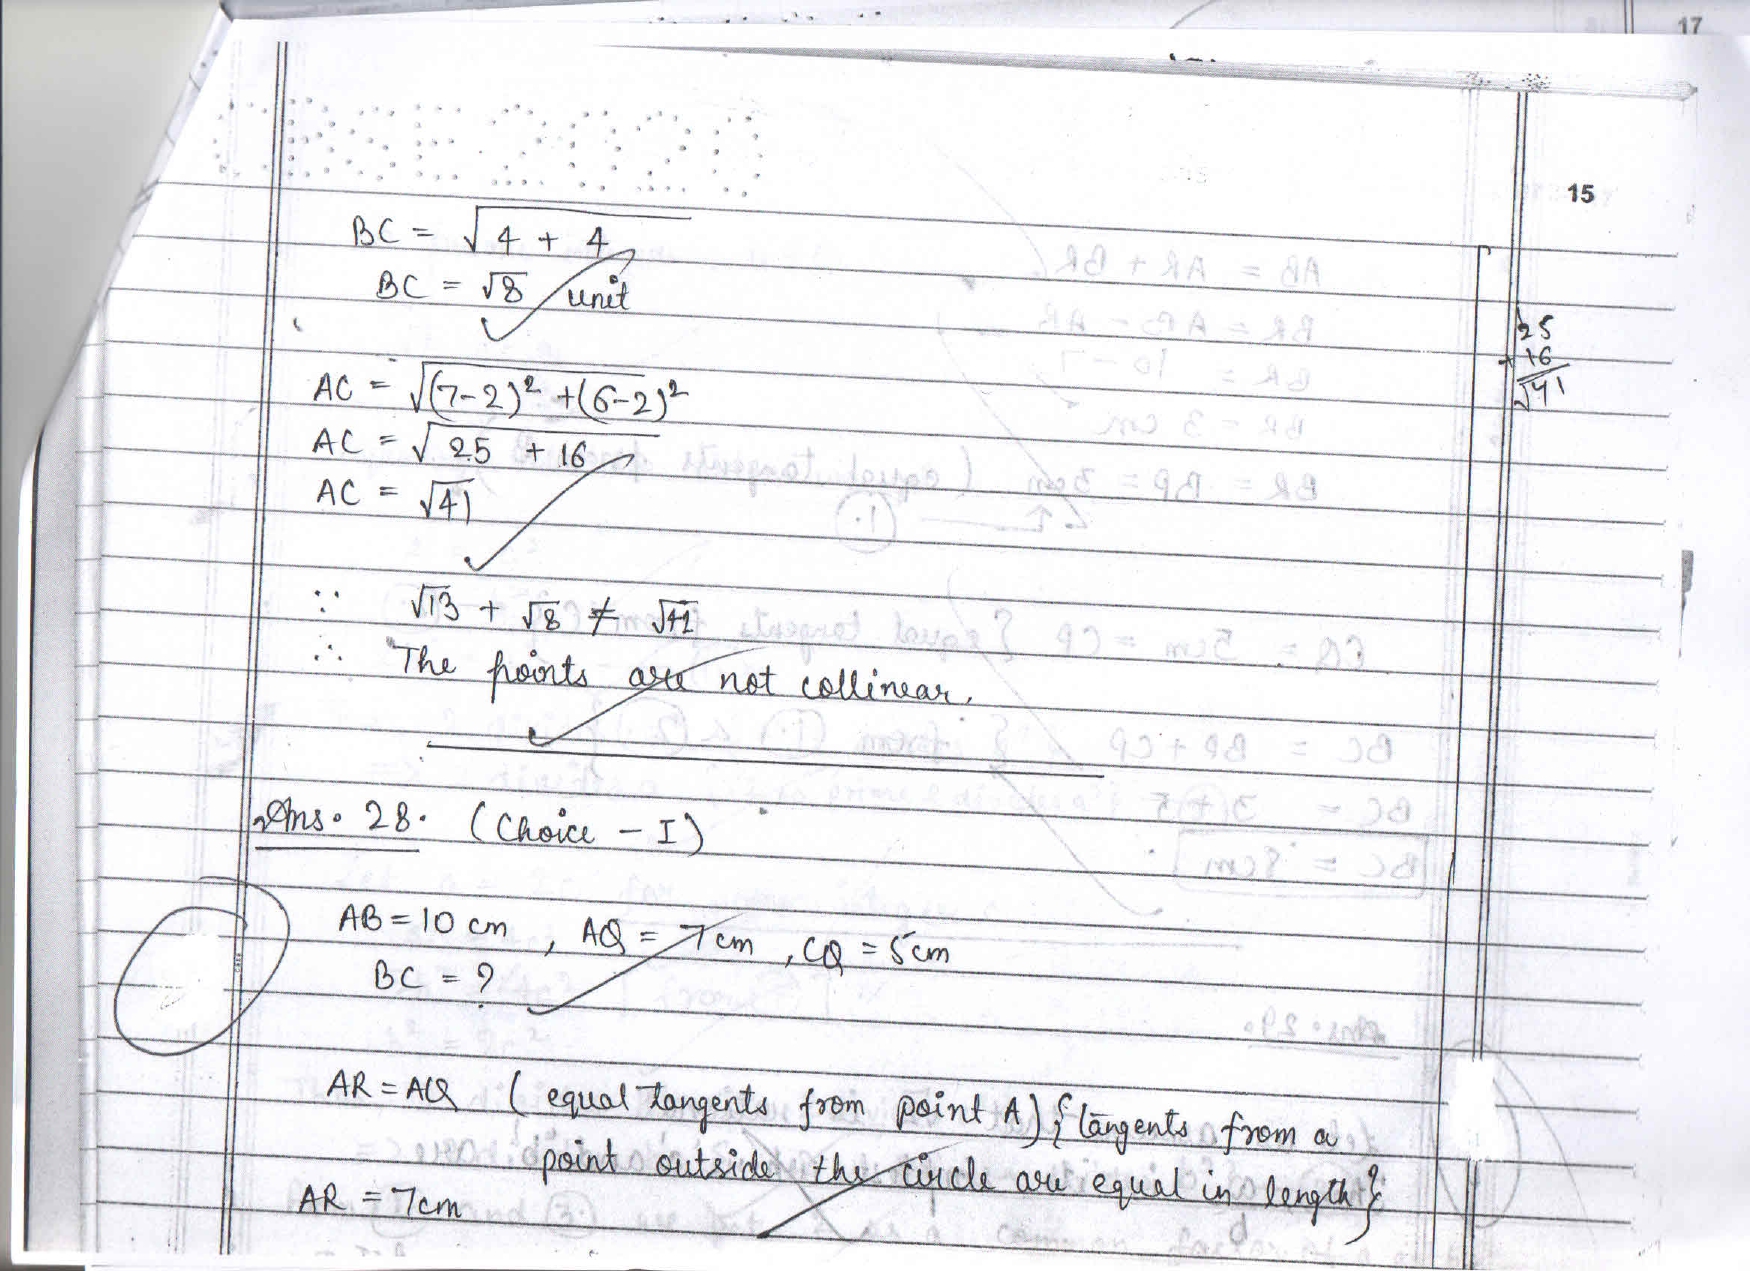 17
CBSE 2020
15
BC = √4 + 4
BC = √8 unit
AC = √(7-2)² + (6-2)²
AC = √25 + 16
AC = √41
25
+ 16
√41
∵ √13 + √8 ≠ √41
∴ The points are not collinear.
Ans. 28. (Choice - I)
AB = 10 cm, AQ = 7 cm, CQ = 5 cm
BC = ?
AR = AQ (equal tangents from point A) {tangents from a
point outside the circle are equal in length}
AR = 7cm